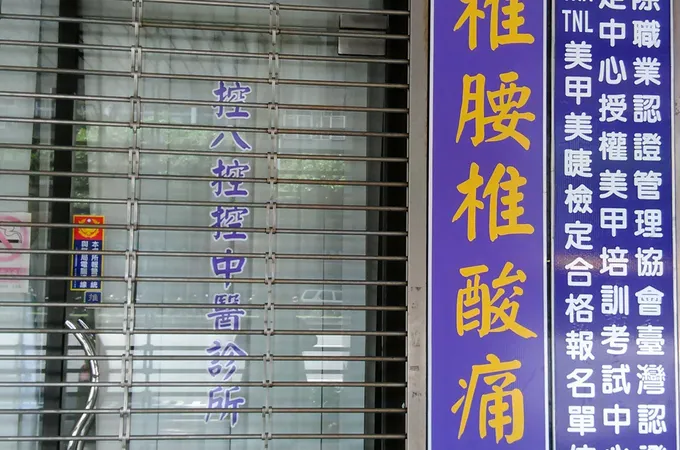 控八控控中醫診所
椎腰椎酸痛
際職業認證管理協會臺灣認證
定中心授權美甲培訓考試中心
TNL美甲美睫檢定合格報名單位